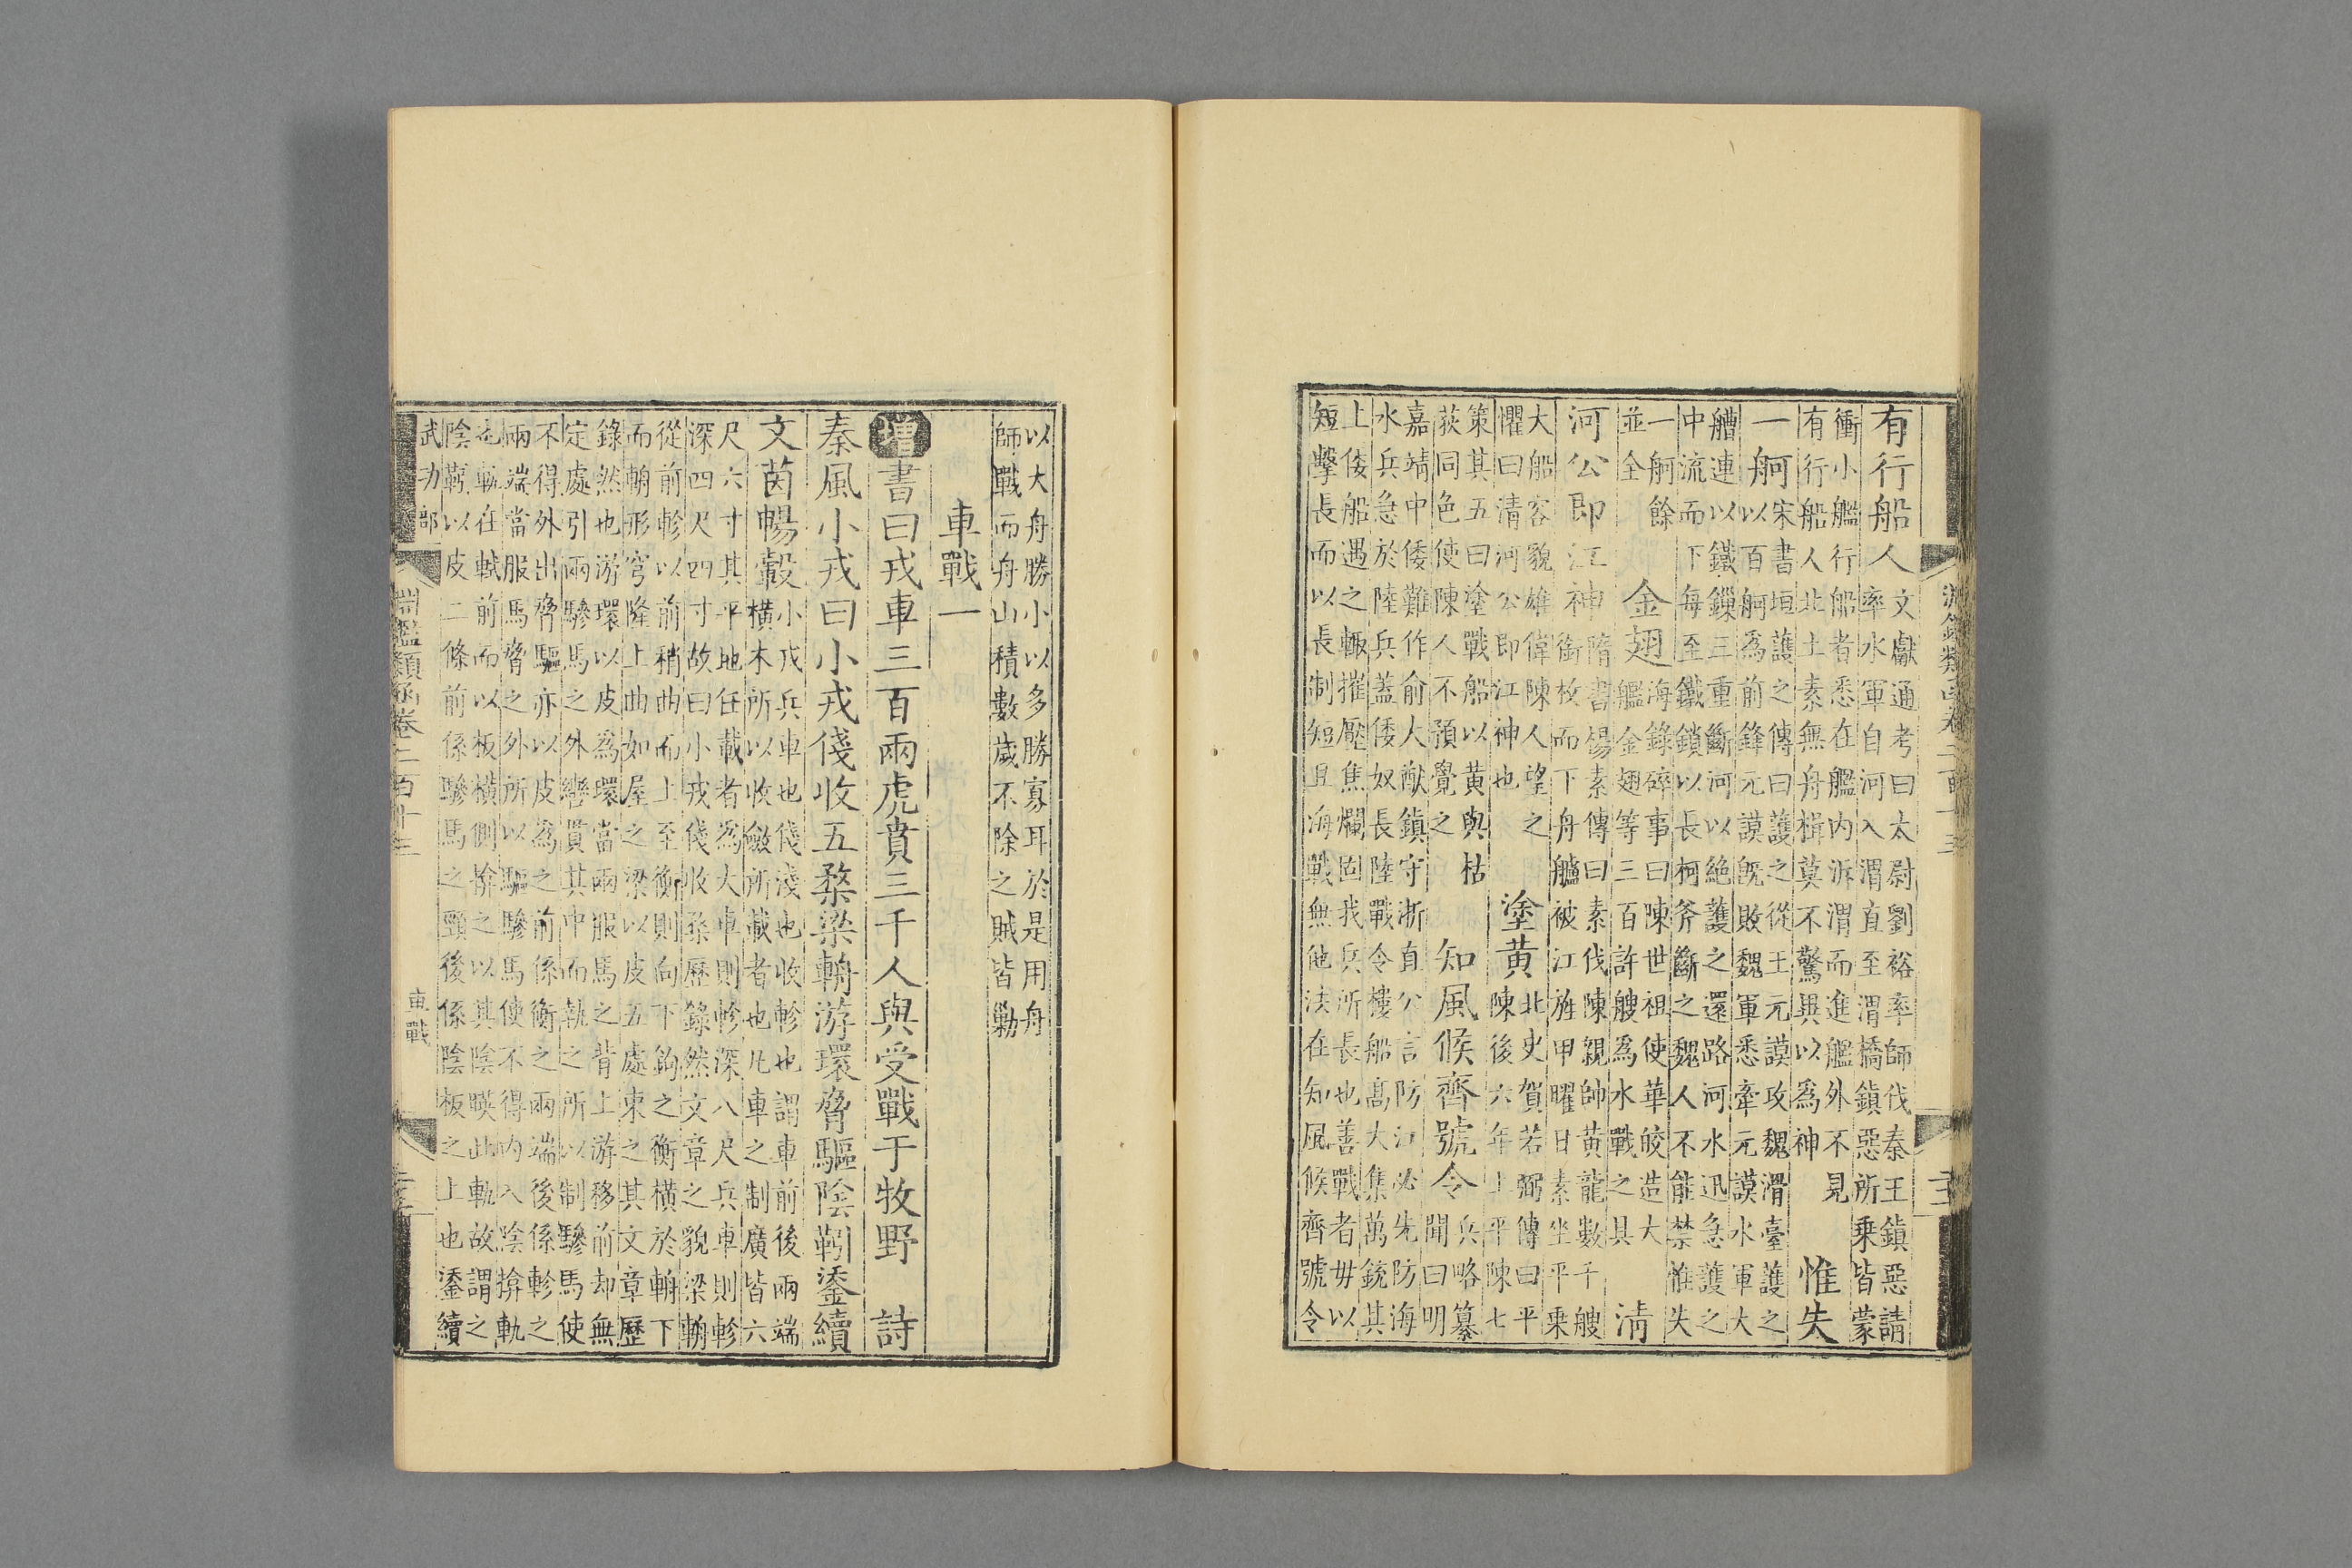 有行船人文獻通考曰太尉劉裕率師伐秦王鎮惡請
率水軍自河入渭直至渭橋鎮惡所乘皆蒙
衝小艦行船者悉在艦内泝渭而進艦外不見
有行船人北土素無舟楫莫不驚與以為神
惟失
一舸宋書垣護之傳曰護之從王元謨攻魏滑臺護之
以百舸為前鋒元謨既敗魏軍悉牽元謨水軍大
艚連以鐵鏁三重斷河以絶護之還路河水迅急護之
中流而下每至鐵鎖以長柯斧斷之魏人不能禁惟失
一舸餘
並全
金翅海錄碎事曰陳世祖使華皎造大
艦金翅等三百許艘為水戰之具
清
河公即江神隋書楊素傳曰素伐陳親帥黃龍數千艘
銜枚而下舟艫被江旌甲曜日素坐平乘
大船容貌雄偉陳人望之
懼曰清河公即江神也
塗黃北史賀若弼傳曰平
陳後六年上平陳七
策其五曰塗戰船以黃與枯
荻同色使陳人不預覺之
知風候齊號令兵略纂
聞曰明
嘉靖中倭難作俞大猷鎮守浙直公言防江必先防海
水兵急於陸兵蓋倭奴長陸戰令樓船高大集萬銃其
上倭船遇之輒摧壓焦爛固我兵所長也善戰者毋以
短擊長而以長制短且海戰無他法在知風候齊號令
淵鑑類函卷二百十三
以大舟勝小以多勝寡耳於是用舟
師戰而舟山積數歲不除之賊皆勦
車戰一
增書曰戎車三百兩虎賁三千人與受戰于牧野 詩
秦風小戎曰小戎俴收五楘梁輈游環脅驅陰靷鋈續
文茵暢轂小戎兵車也俴淺也收軫也謂車前後兩端
橫木所以收斂所載者也凡車之制廣皆六
尺六寸其平地任載者為大車則軫深八尺兵車則軫
深四尺四寸故曰小戎俴收楘歷錄然文章之貌梁輈
從前軫以前稍曲而上至衡則向下鉤之衡橫於輈下
而輈形穹隆上曲如屋之梁以皮五處束之其文章歷
錄然也游環以皮為環當兩服馬之背上游移前却無
定處引兩驂馬之外轡貫其中而執之所以制驂馬使
不得外出脅驅亦以皮為之前係衡之兩端後係軫之
兩端當服馬脅之外所以驅驂馬使不得内入陰揜軌
也軌在軾前而以板橫側揜之以其陰映此軌故謂之
陰靷以皮二條前係驂馬之頸後係陰板之上也鋈續
武功部
淵鑑類函卷二百十三
車戰